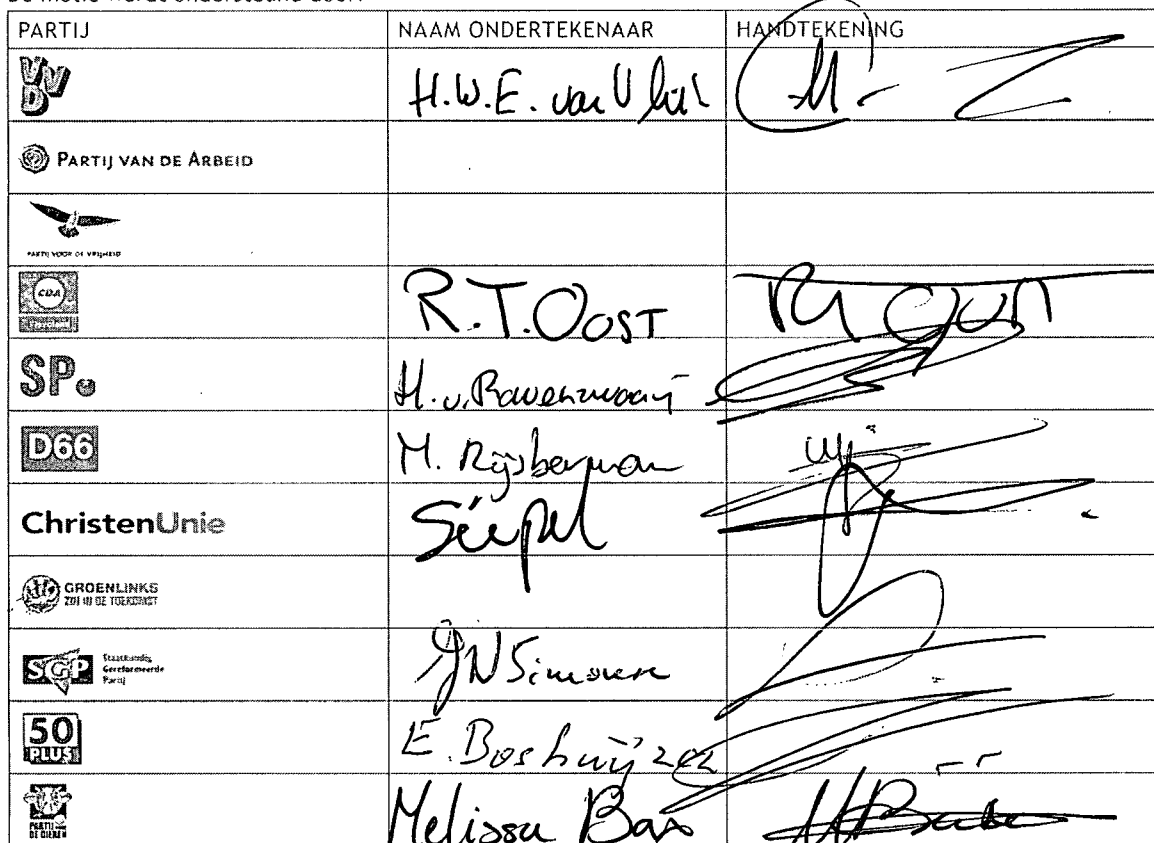 PARTIJ NAAM ONDERTEKENAAR HANDTEKENING
VVD H.W.E. van Vliet
PARTIJ VAN DE ARBEID
PARTIJ VOOR DE VRIJHEID
CDA R.T. OOST
SP. H.v. Ravenzwaaij
D66 M. Rijsberman
ChristenUnie Seepel
GROENLINKS
ZIN IN DE TOEKOMST
SGP Staatkundig
Gereformeerde
Partij
JN Simonse
50 PLUS E. Boshuijzen
PARTIJ
DE DIEREN
Melissa Bax